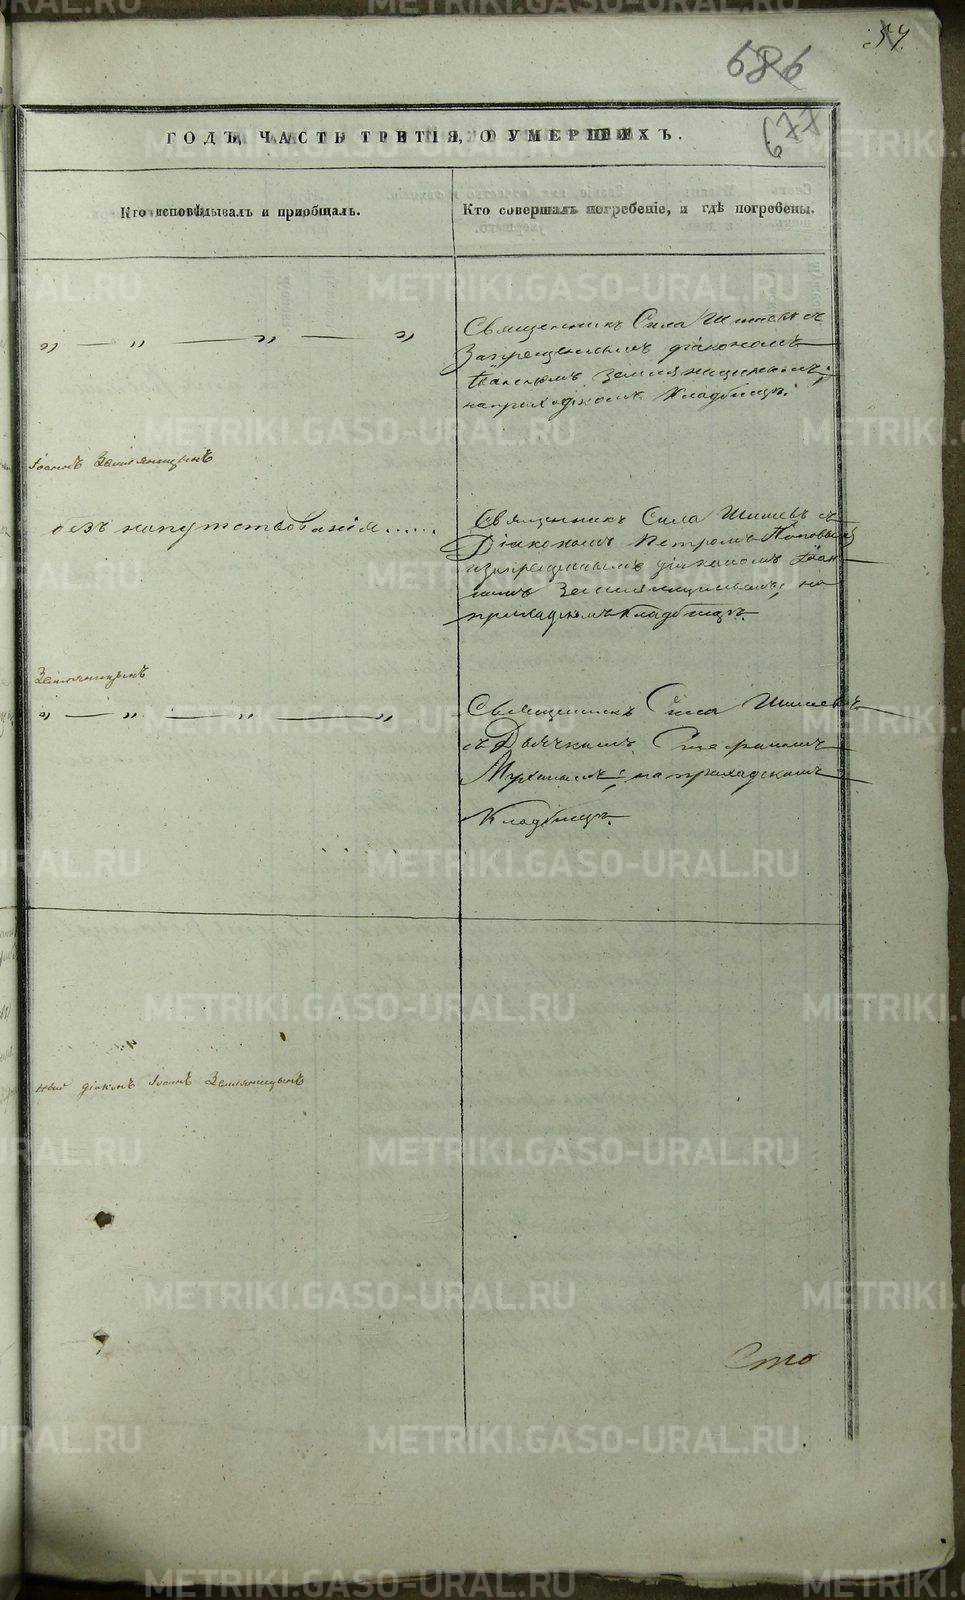 54.
686
677
ГОДЪ, ЧАСТЬ ТРЕТІЯ, О УМЕРШИХЪ.
Кто исповѣдывалъ и пріобщалъ.
Кто совершалъ погребеніе, и гдѣ погребены.
„ — „ — „ — „
Священникъ Сила Шишевъ съ
Запрещеннымъ діакономъ
Іоанномъ Земляницынымъ,
на приходскомъ Кладбищѣ.
Іоаннъ Земляницынъ
безъ напутствованія......
Священникъ Сила Шишевъ съ
Діакономъ Петромъ Поповымъ
и запрещеннымъ діаконом Іоан-
номъ Земляницынымъ, на
приходскомъ кладбищѣ.
Земляницынъ
„ — „ — „ — „
Священникъ Сила Шишевъ
съ Дьячкомъ Стефаномъ
на приходскомъ
Кладбищѣ.
ный діаконъ Іоаннъ Земляницынъ
Сто
METRIKI.GASO-URAL.RU